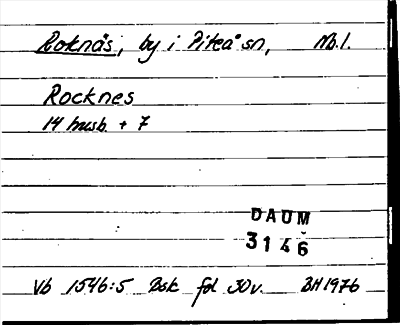 Roknäs, by i Piteå sn, Nb.l.
Rocknes
14 husb. + 7
DAUM
3146
Vb 1546:5 Bsk fol 30v. BH 1976